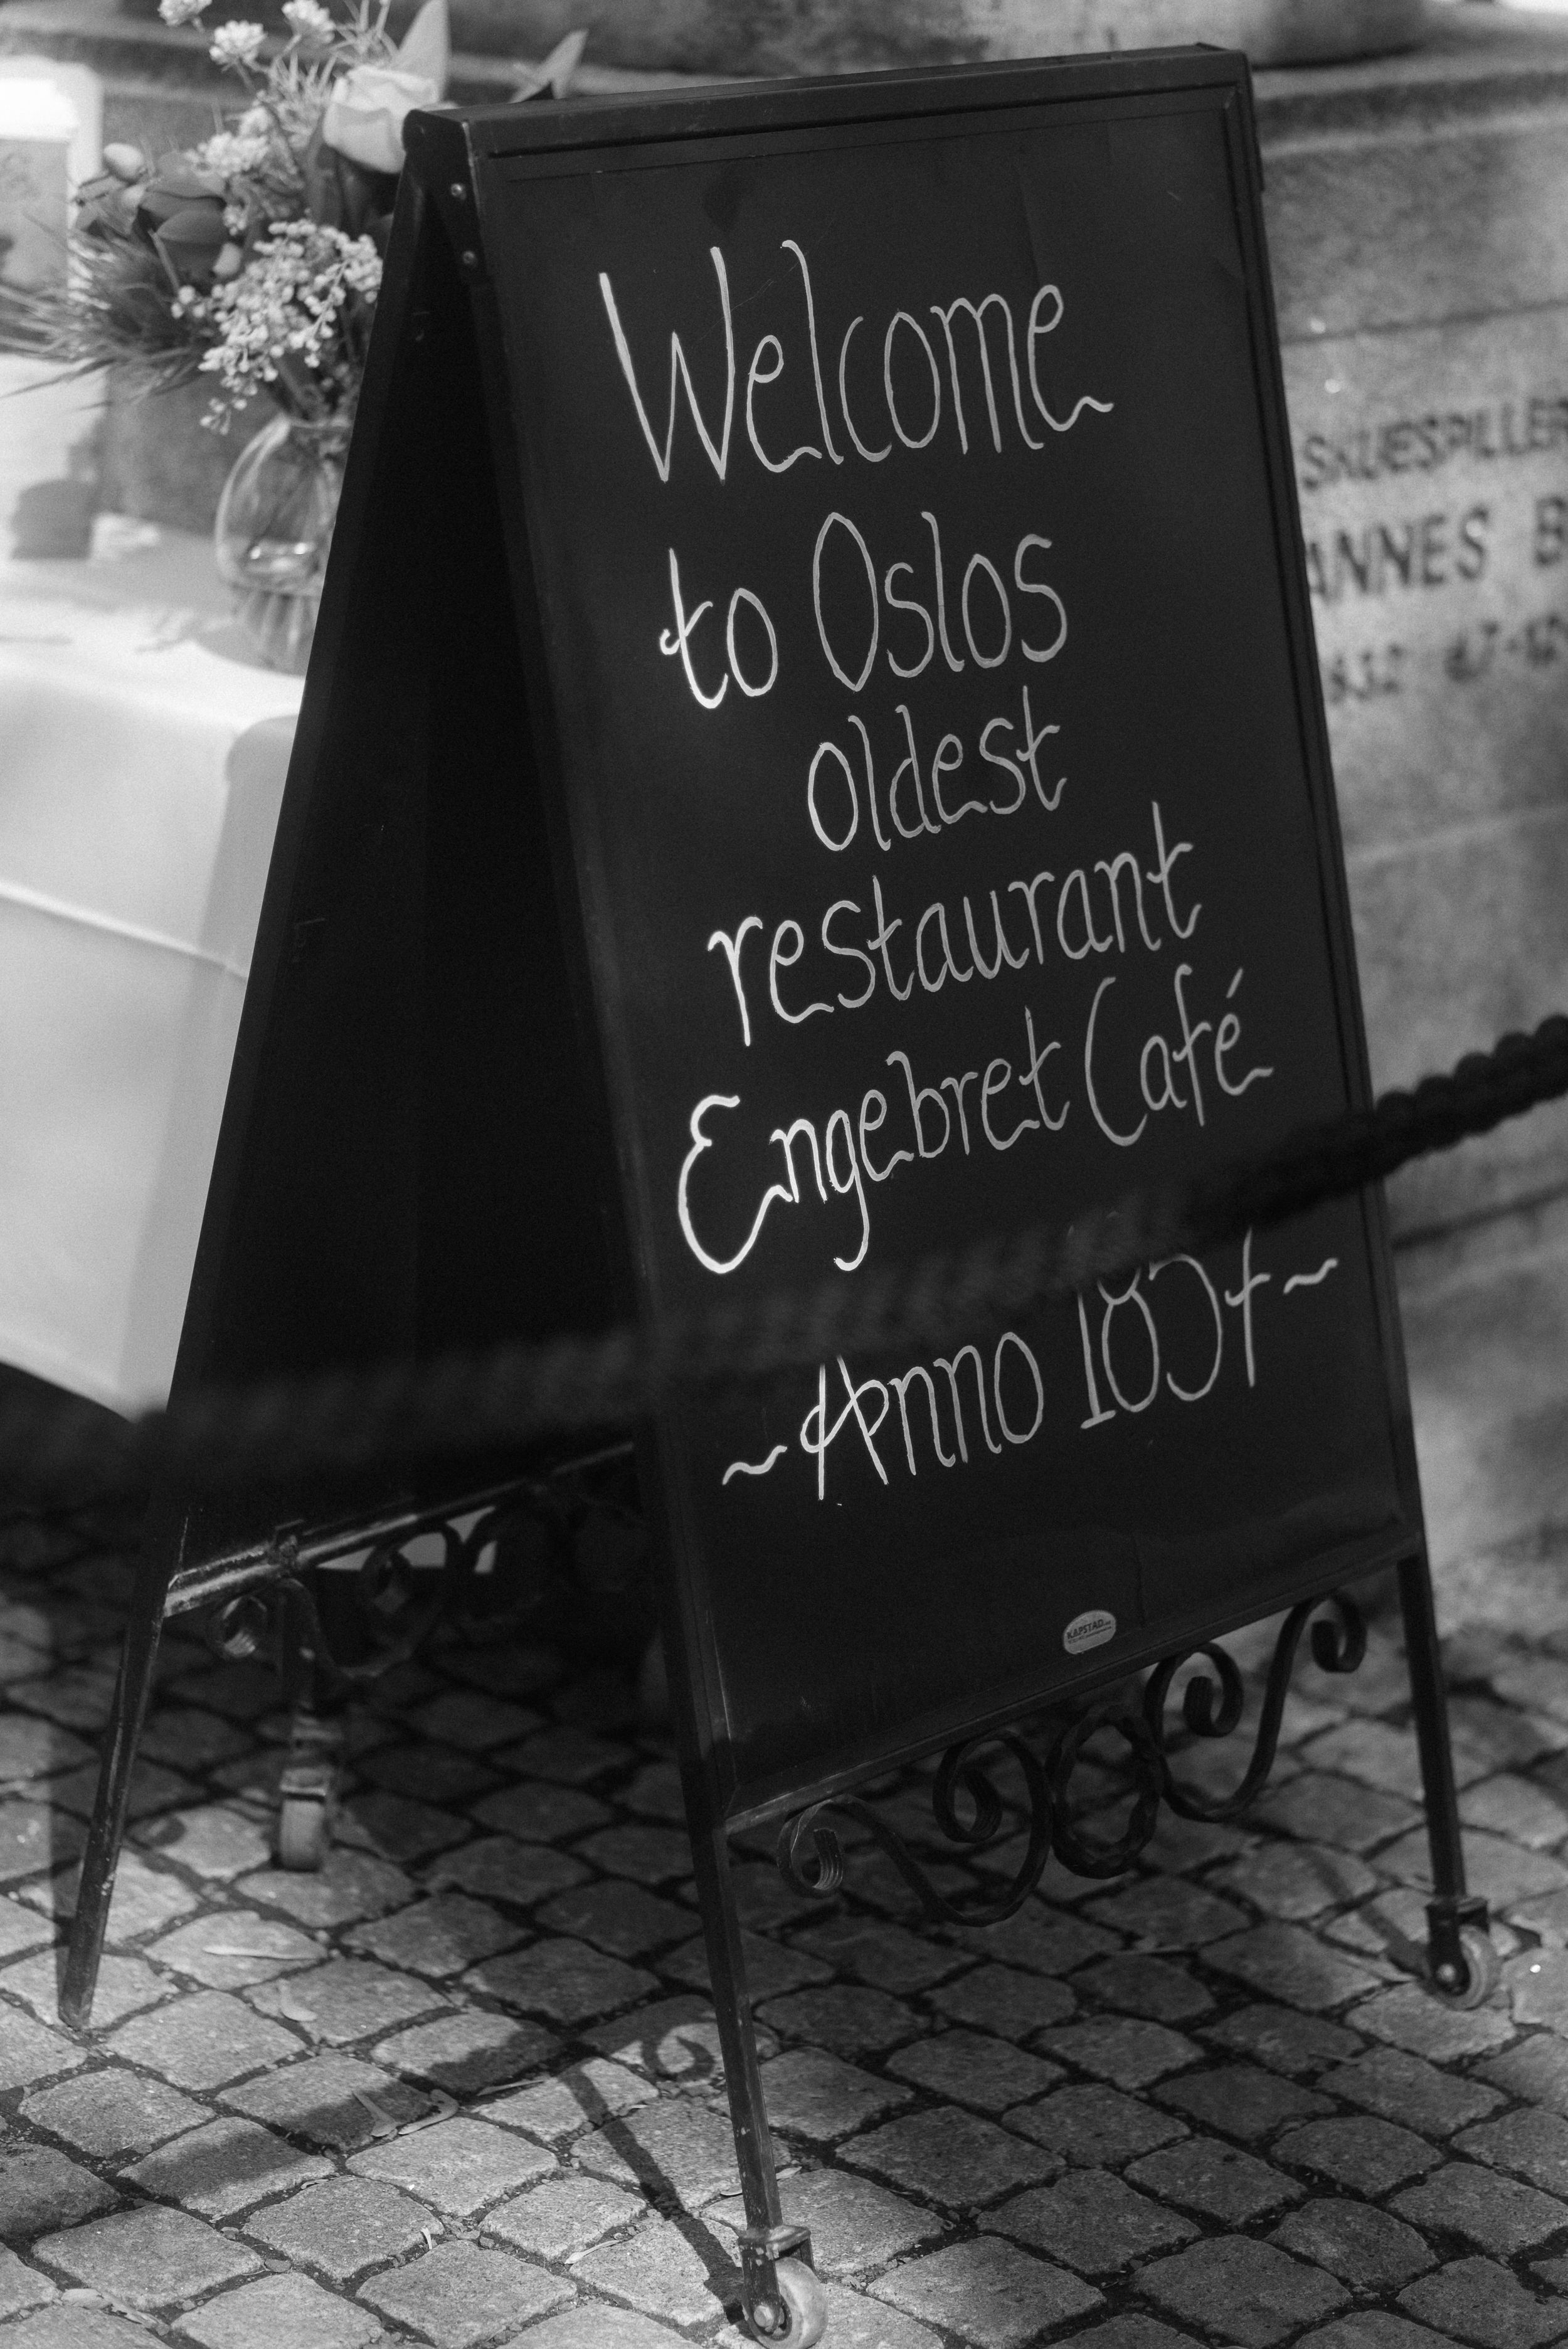 Welcome
to Oslos
oldest
restaurant
Engebret Café
~Anno 1857~
SKUESPILLER
ANNES B
KAPSTAD